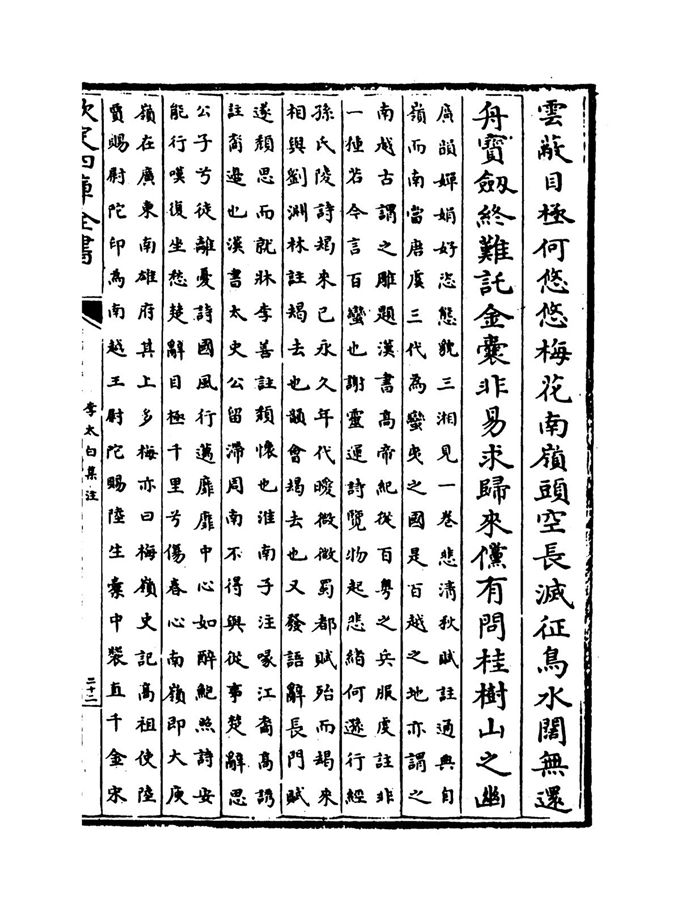 雲蔽目極何悠悠梅花南嶺頭空長滅征鳥水闊無還
舟寶劔終難託金囊非易求歸來儻有問桂樹山之幽
廣韻嬋娟好姿態貌三湘見一卷悲清秋賦註通典自
嶺而南當唐虞三代為蠻夷之國是百越之地亦謂之
南越古謂之雕題漢書高帝紀從百粤之兵服虔註非
一種若今言百蠻也謝靈運詩覽物起悲緒何遜行經
孫氏陵詩朅來已永久年代曖微微蜀都賦殆而朅來
相與劉淵林註朅去也韻會朅去也又發語辭長門賦
遂頽思而就牀李善註頽懷也淮南子注喙江裔高誘
註裔邉也漢書太史公留滯周南不得與從事楚辭思
公子兮徒離憂詩國風行邁靡靡中心如醉鮑照詩安
能行嘆復坐愁楚辭目極千里兮傷春心南嶺即大庾
嶺在廣東南雄府其上多梅亦曰梅嶺史記高祖使陸
賈賜尉陀印為南越王尉陀賜陸生橐中裝直千金宋
欽定四庫全書
李太白集注
二十二